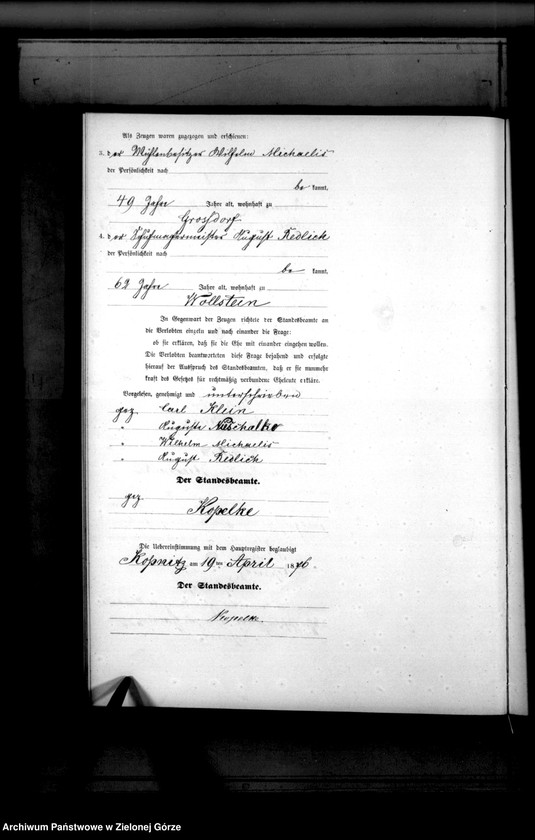 Als Zeugen waren zugezogen und erschienen:
3. der Mühlenbesitzer Wilhelm Michaelis
der Persönlichkeit nach
be kannt,
49 Jahre Jahre alt, wohnhaft zu
Grossdorf
4. der Schuhmachermeister August Redlich
der Persönlichkeit nach
be kannt,
62 Jahre Jahre alt, wohnhaft zu
Wollstein
In Gegenwart der Zeugen richtete der Standesbeamte an
die Verlobten einzeln und nach einander die Frage:
ob sie erklären, daß sie die Ehe mit einander eingehen wollen.
Die Verlobten beantworteten diese Frage bejahend und erfolgte
hierauf der Ausspruch des Standesbeamten, daß er sie nunmehr
kraft des Gesetzes für rechtmäßig verbundene Eheleute erkläre.
Vorgelesen, genehmigt und unterschrieben
gez. Carl Klein
" Auguste
" Wilhelm Michaelis
" August Redlich
Der Standesbeamte.
gez.
Kopelke
Die Uebereinstimmung mit dem Hauptregister beglaubigt
Kopnitz am 19ten April 1876.
Der Standesbeamte.
Kopelke.
Archiwum Państwowe w Zielonej Górze